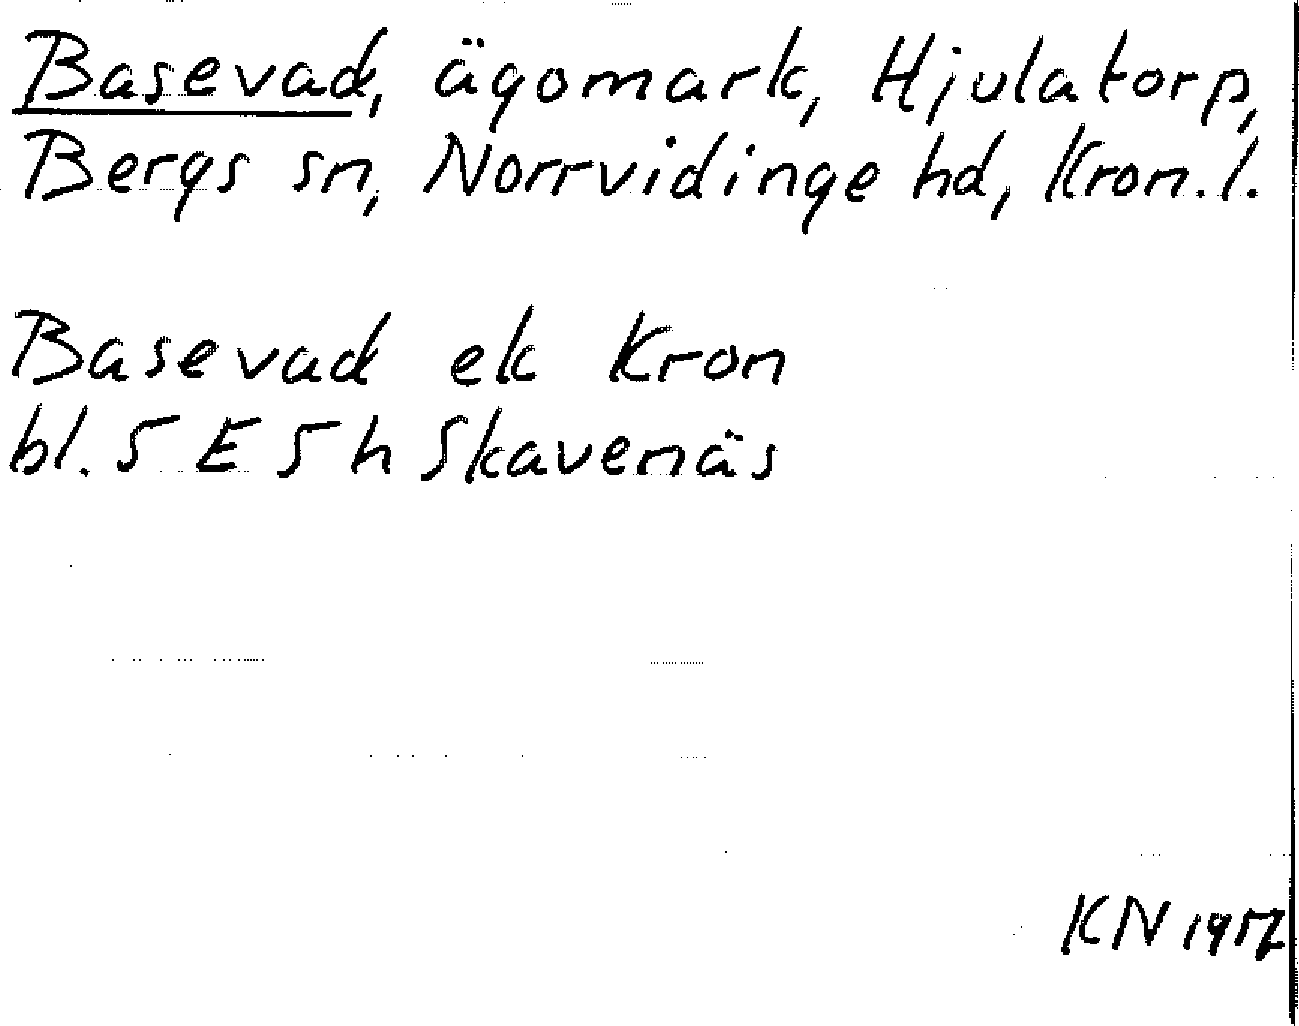 Basevad, ägomark, Hjulatorp,
Bergs sn, Norrvidinge hd, Kron.l.
Basevad ek Kron
bl. 5 E 5 h Skavenäs
KN